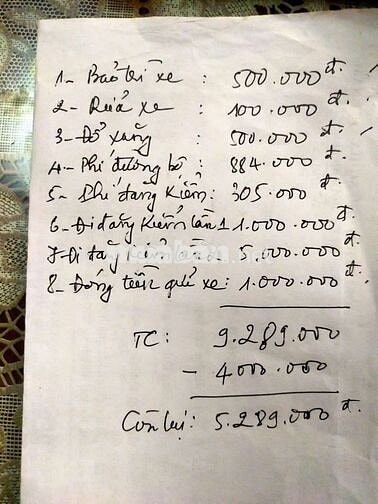 1- Bảo trì xe : 500.000 đ.
2- Rửa xe : 100.000 đ.
3- Đổ xăng : 500.000 đ.
4- Phí đường bộ : 884.000 đ.
5- Phí đăng kiểm: 305.000 đ.
6- Đi đăng kiểm lần 1 1.000.000 đ.
7- Đi đăng 5.000.000 đ.
8- Đóng tiền quỹ xe: 1.000.000 đ.
TC: 9.289.000
- 4000.000
Còn lại: 5.289.000 đ.